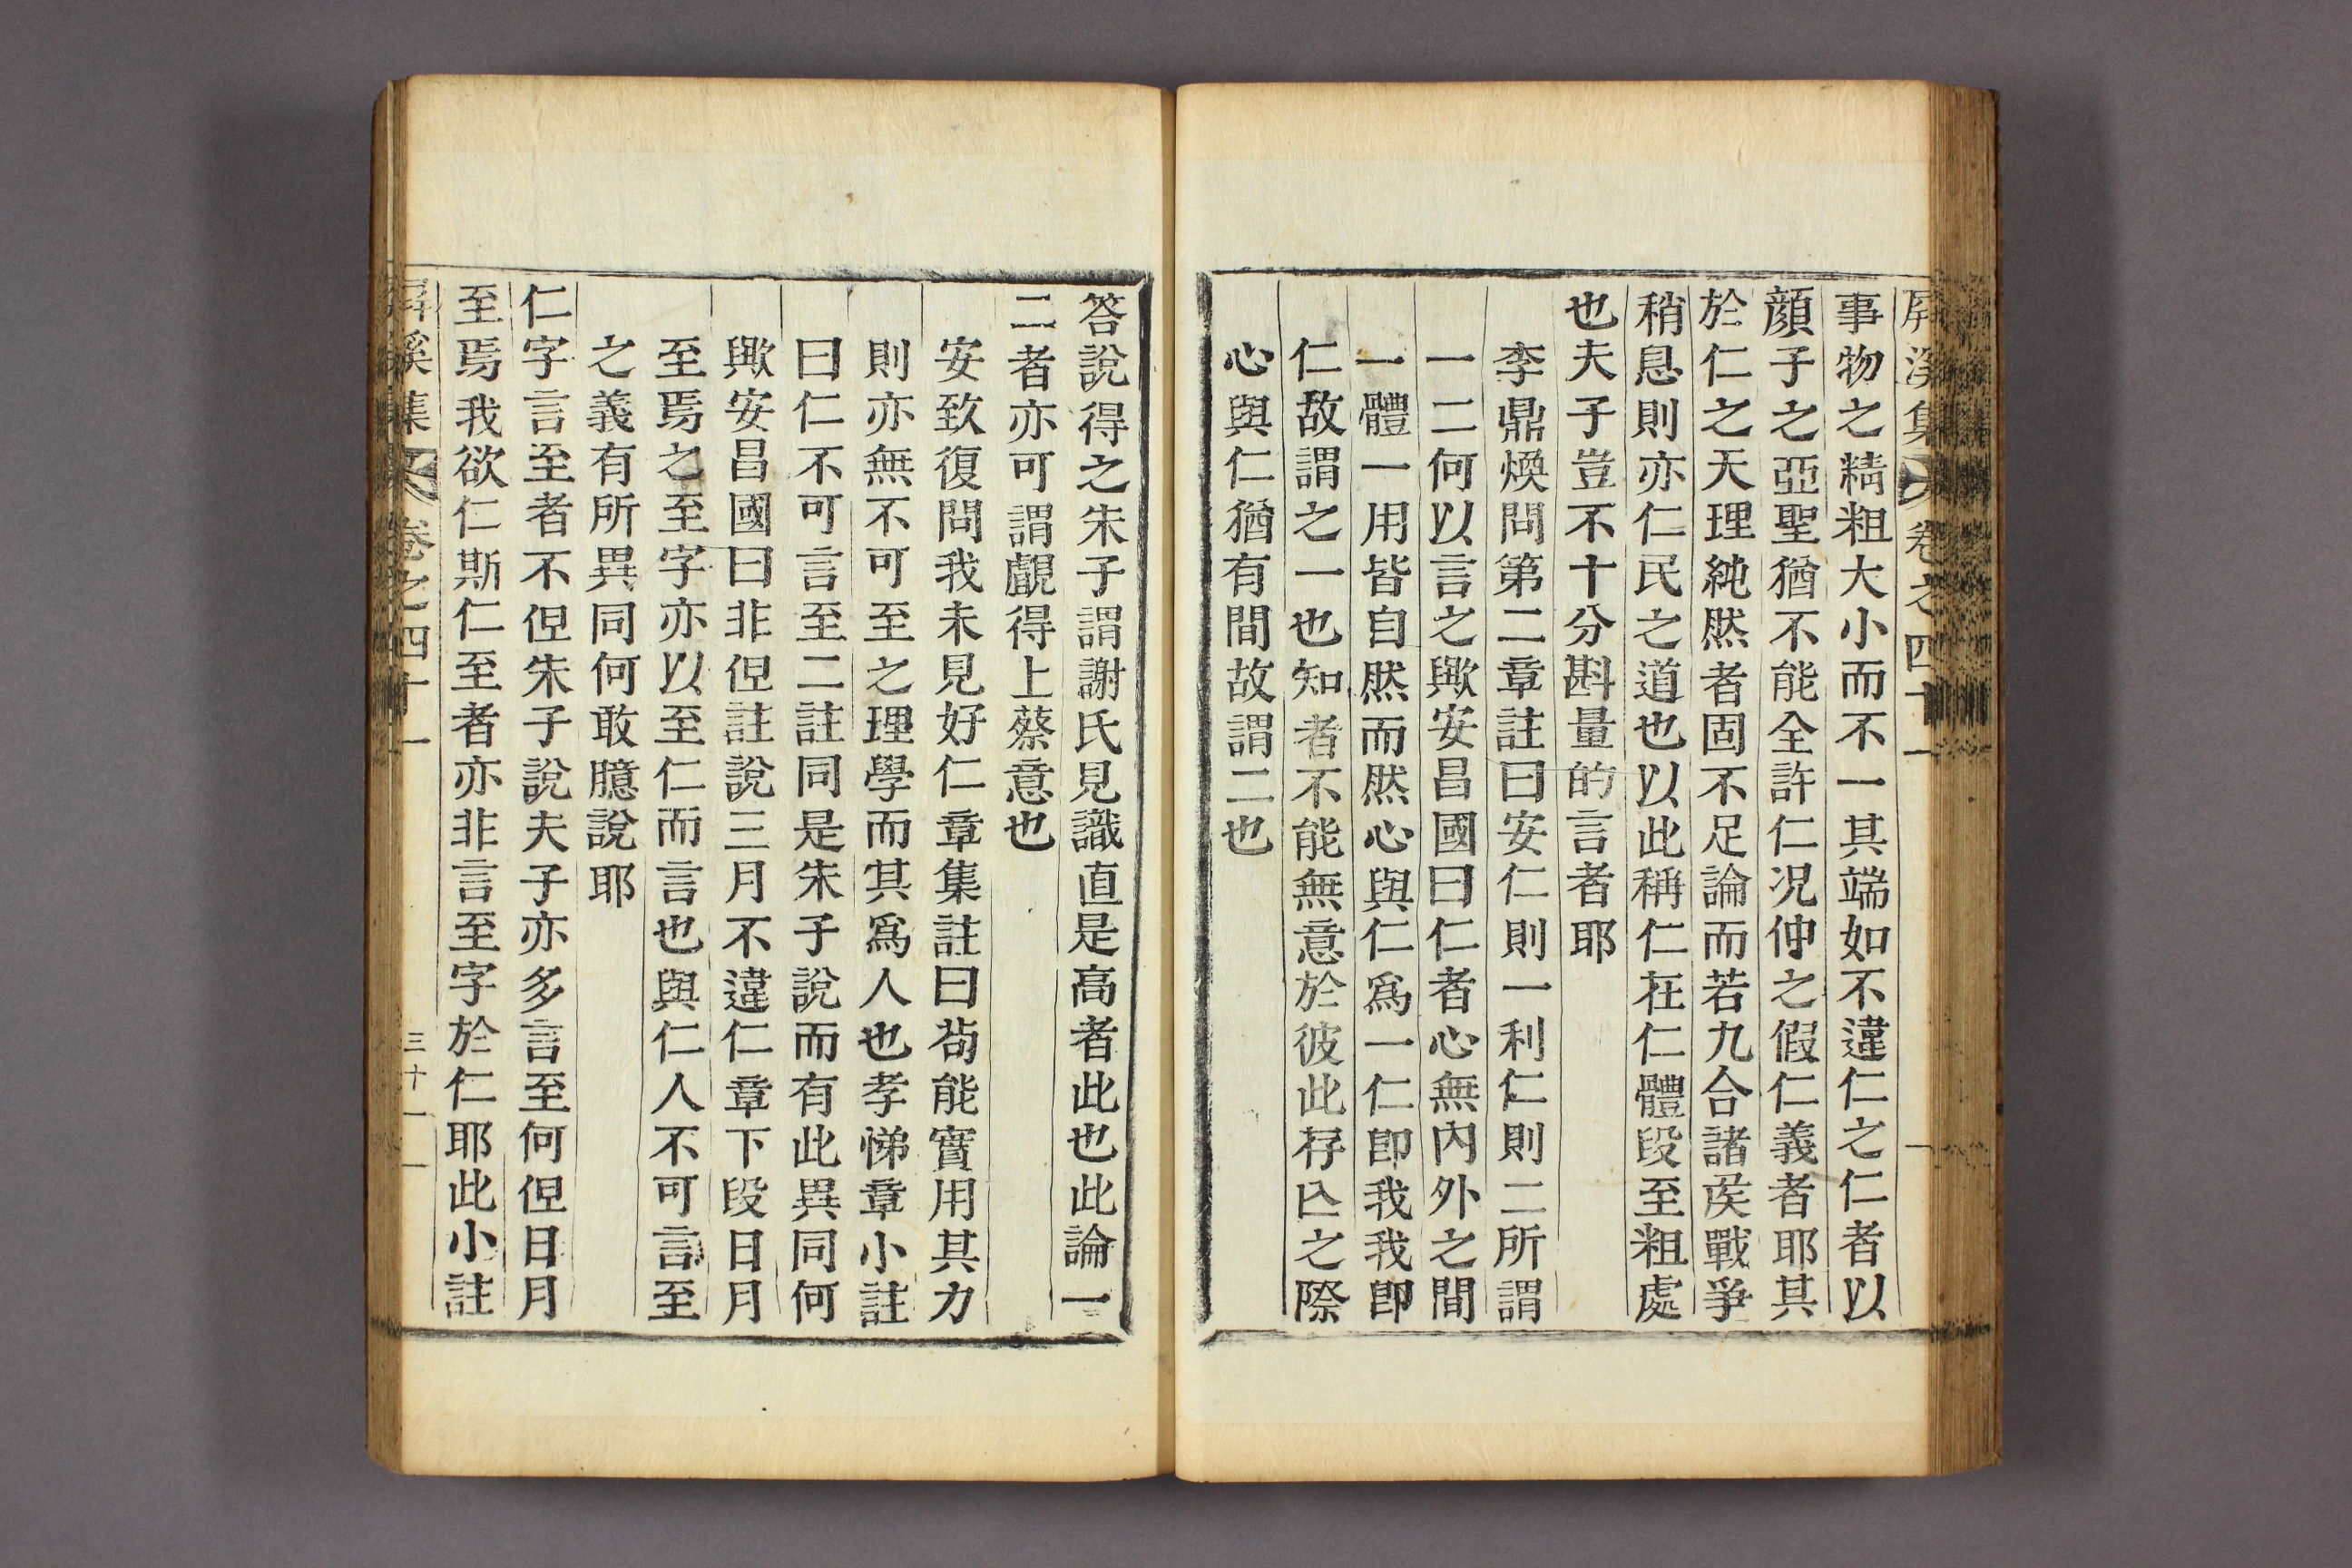 屛溪集 卷之四十一
事物之精粗大小而不一其端如不違仁之仁者以
顔子之亞聖猶不能全許仁况仲之假仁義者耶其
於仁之天理純然者固不足論而若九合諸矦戰爭
稍息則亦仁民之道也以此稱仁在仁體段至粗處
也夫子豈不十分斟量的言者耶
李鼎煥問第二章註曰安仁則一利仁則二所謂
一二何以言之歟安昌國曰仁者心無內外之間
一體一用皆自然而然心與仁爲一仁卽我我卽
仁故謂之一也知者不能無意於彼此存亾之際
心與仁猶有間故謂二也
答說得之朱子謂謝氏見識直是高者此也此論一
二者亦可謂覰得上蔡意也
安致復問我未見好仁章集註曰苟能實用其力
則亦無不可至之理學而其爲人也孝悌章小註
曰仁不可言至二註同是朱子說而有此異同何
歟安昌國曰非但註說三月不違仁章下段日月
至焉之至字亦以至仁而言也與仁人不可言至
之義有所異同何敢臆說耶
仁字言至者不但朱子說夫子亦多言至何但日月
至焉我欲仁斯仁至者亦非言至字於仁耶此小註
屛溪集 卷之四十一 三十一